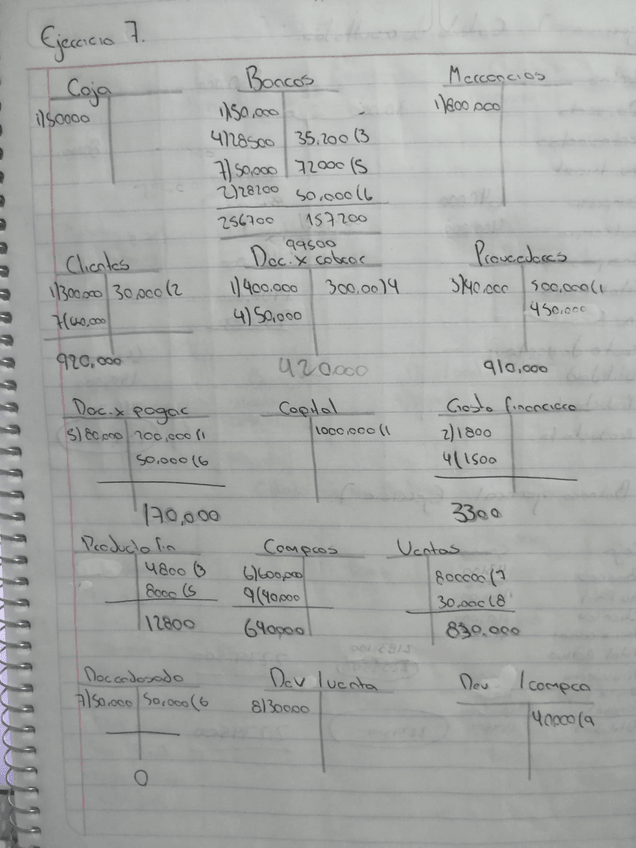 Ejercicio 7.
Caja Bancos Mercancías
1)50000 1)50,000 1)800,000
4)28500 35,200(3
7)50,000 72000(5
2)28200 50,000(6
256700 157200
99500
Clientes Doc. x cobrar Proveedores
1)300,000 30,000(2 1)400,000 300,00)4 3)40,000 500,000(1
4)50,000 450,000
920,000 420,000 910,000
Doc. x pagar Capital Gasto financiero
5)80,000 200,000(1 1000,000(1 2)1800
50,000(6 4(1500
170,000 3300
Producto fin Compras Ventas
4800(3 6)600,000 800000(7
8000(5 9(40,000 30,000(8
12800 640,000 830,000
Doc endosado Dev /venta Dev /compra
7)50,000 50,000(6 8)30000 40000(9
0